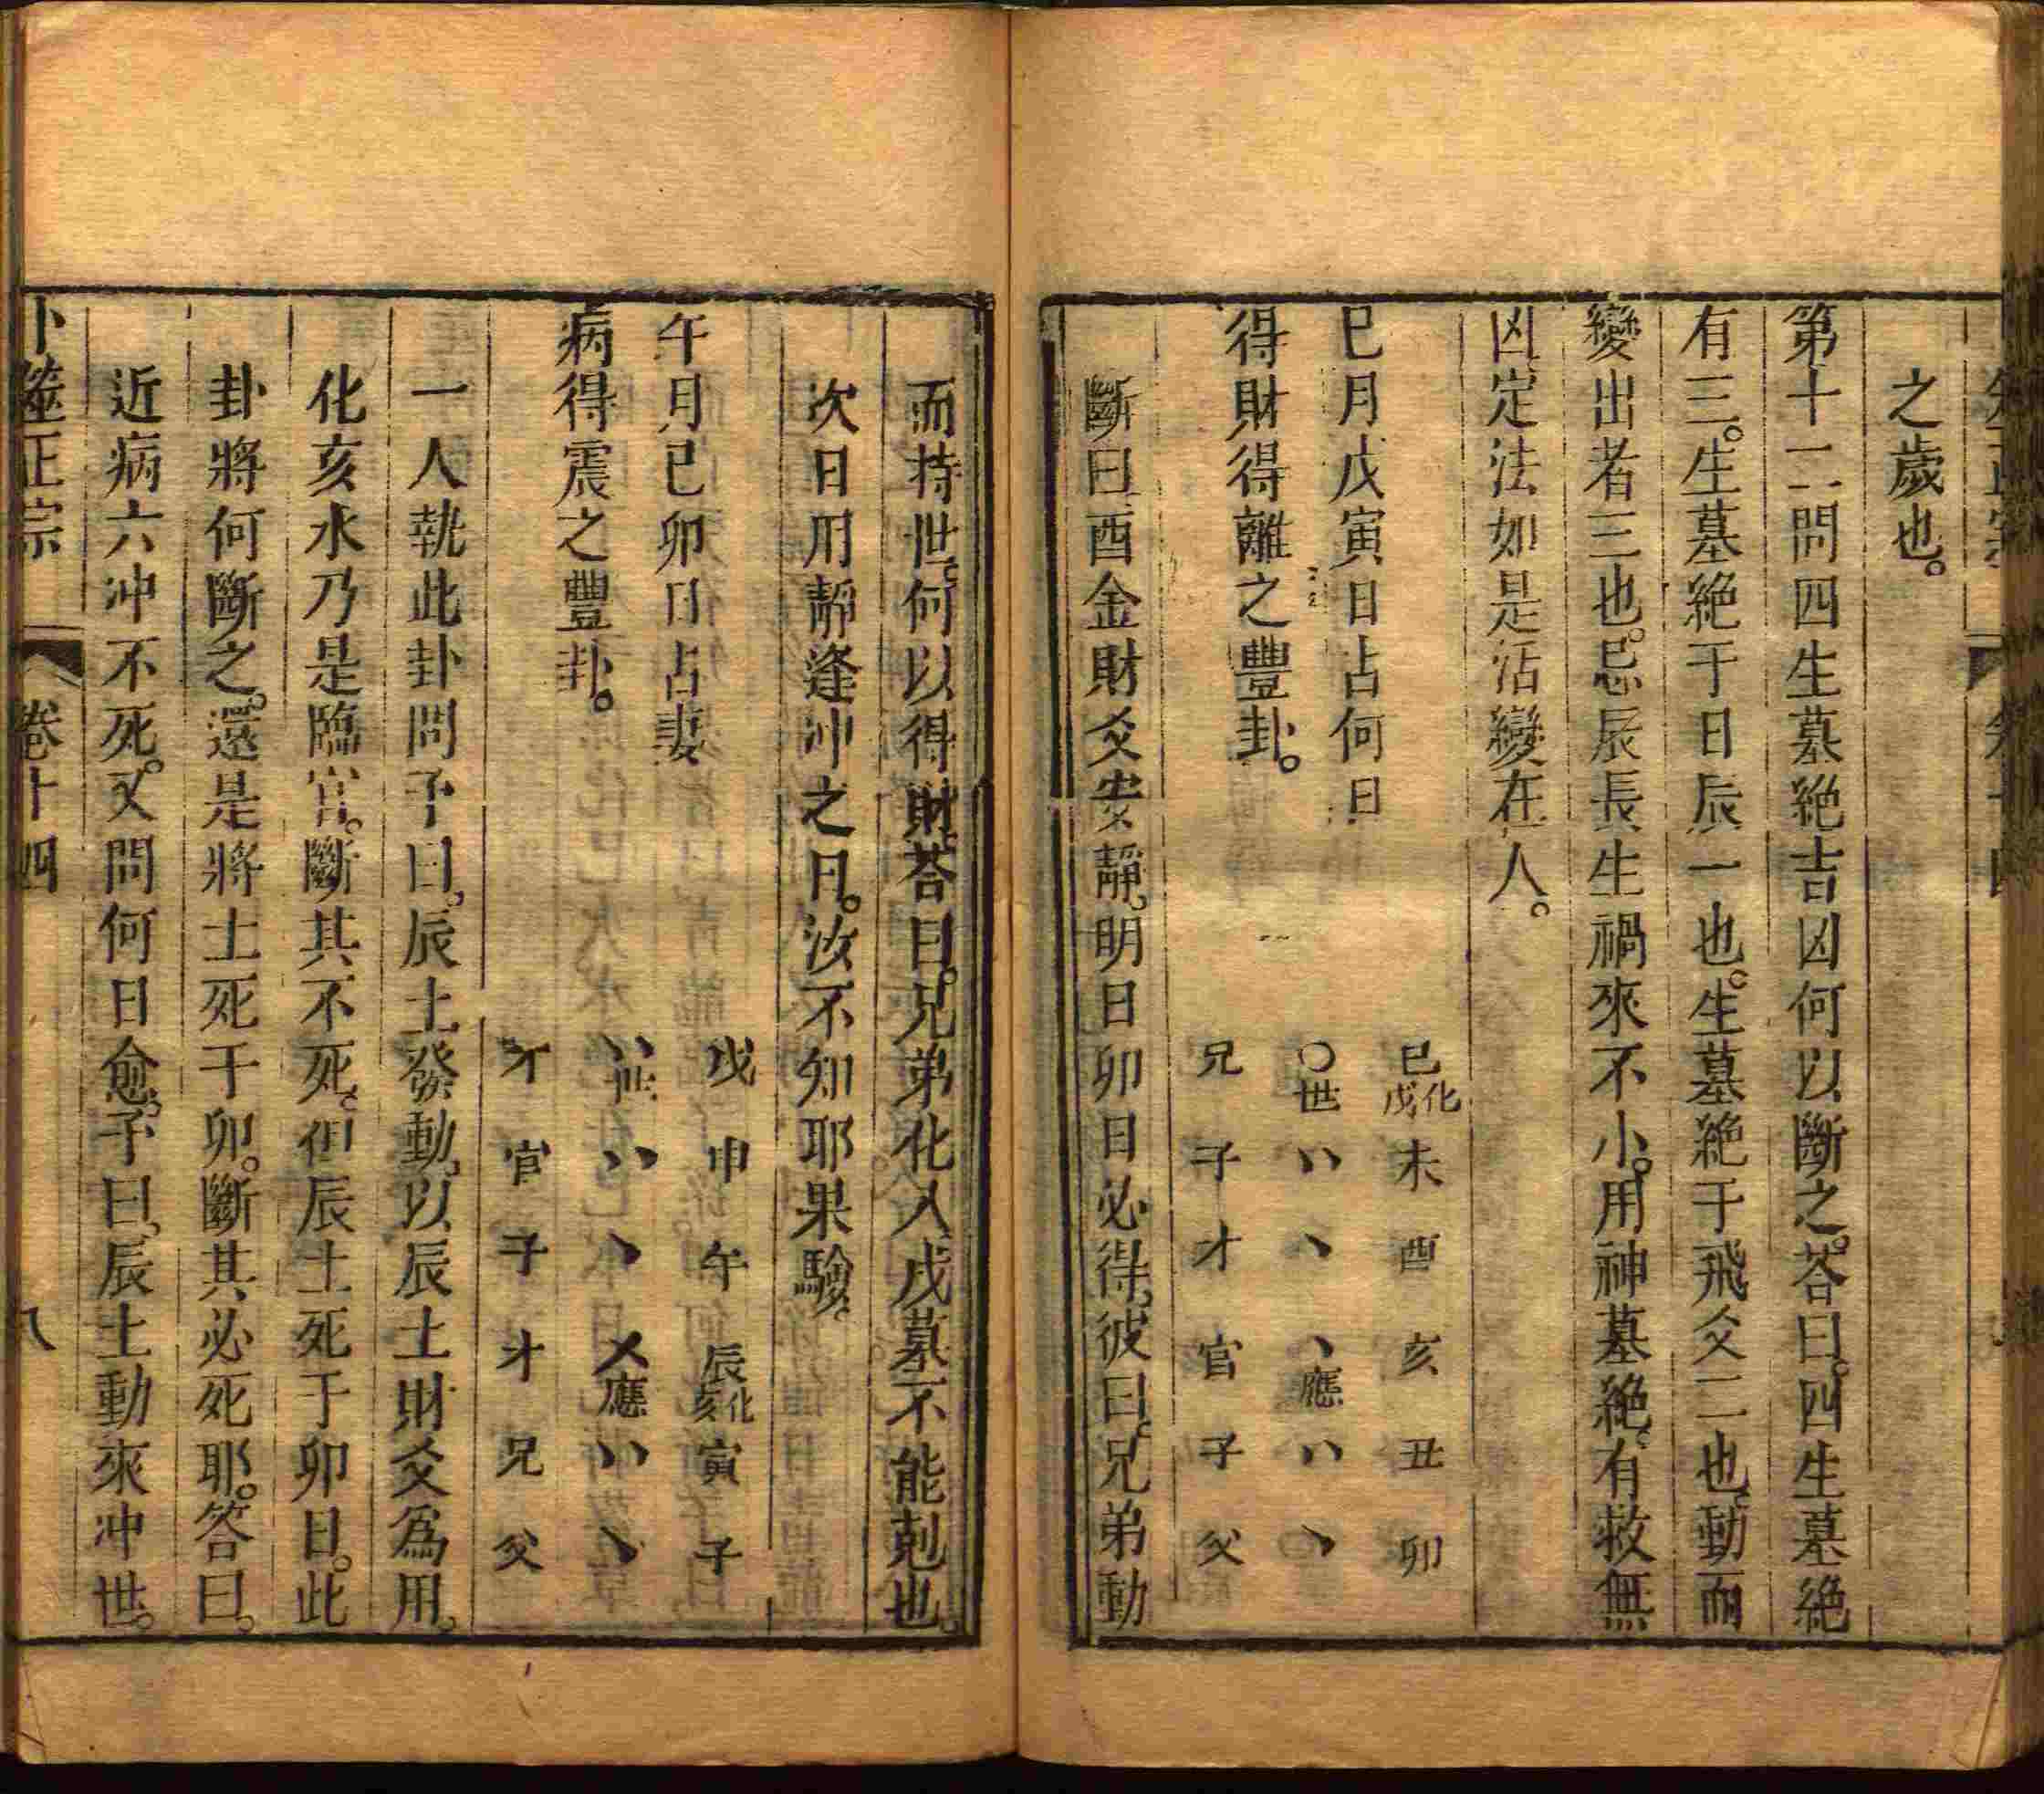 之歲也。
第十二問四生墓絶吉凶何以斷之。荅曰。四生墓絶
有三。生墓絶于日辰一也。生墓絶于飛爻二也。動而
變出者三也。忌辰長生禍來不小。用神墓絶。有救無
凶。定法如是活變在人。
巳月戊寅日占何日
得財得離之豐卦。
巳化戌 未 酉 亥 丑 卯
〇世 〃 丶 丶應 〃 丶
兄 子 才 官 子 父
斷曰。酉金財爻安靜。明日卯日必得。彼曰。兄弟動
而持世。何以得財。荅曰。兄弟化入戌墓不能剋也。
次日用靜逢冲之日。汝不知耶果驗。
午月己卯日占妻
病得震之豐卦。
戌 申 午 辰化亥 寅 子
〃世 〃 丶 乂應 〃 丶
才 官 子 才 兄 父
一人執此卦問予曰。辰土發動。以辰土財爻為用。
化亥水乃是臨官。斷其不死。但辰土死于卯日。此
卦將何斷之。還是將土死于卯。斷其必死耶。答曰。
近病六冲不死。又問何日愈。予曰。辰土動來冲世。
卜筮正宗 卷十四 八